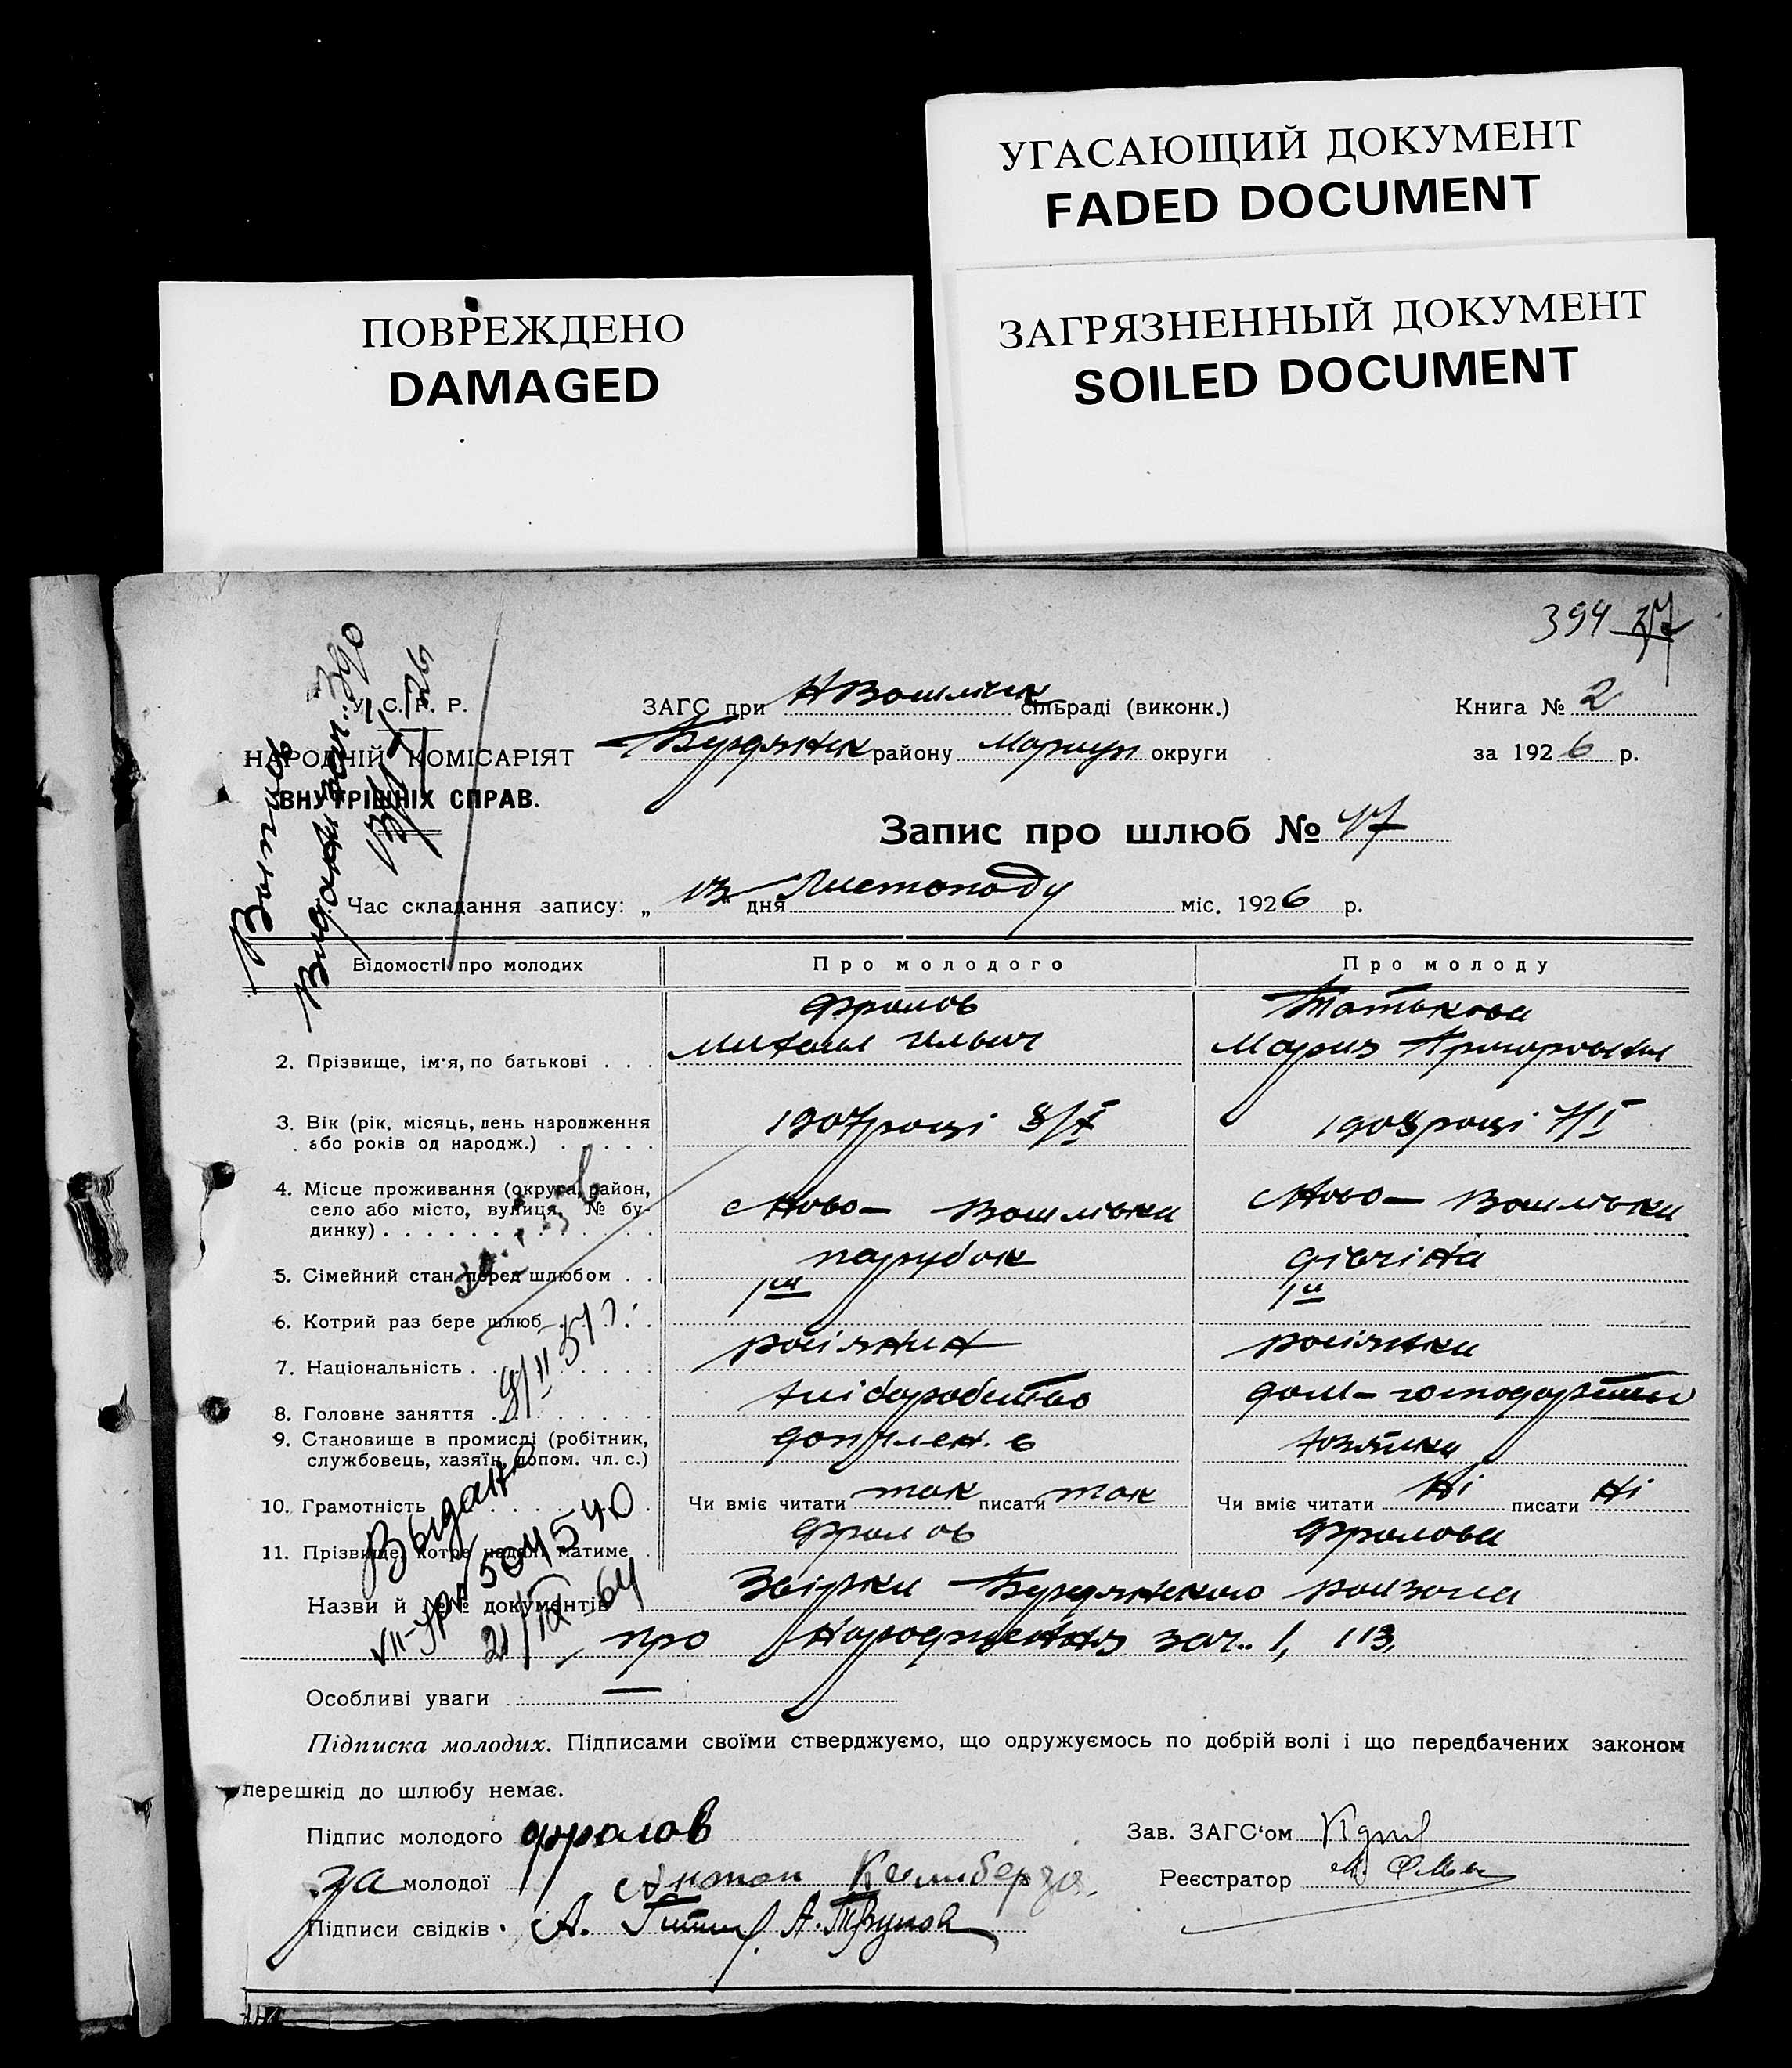 УГАСАЮЩИЙ ДОКУМЕНТ
FADED DOCUMENT
ПОВРЕЖДЕНО
DAMAGED
ЗАГРЯЗНЕННЫЙ ДОКУМЕНТ
SOILED DOCUMENT
394 27
У. С. Р. Р.
НАРОДНІЙ КОМІСАРІЯТ
ВНУТРІШНІХ СПРАВ.
ЗАГС при НВасилівск сільраді (виконк.)
Бердянск району Маріуп округи
Книга № 2
за 1926 р.
Запис про шлюб № 17
Час складання запису: „ 13 дня Листопаду міс. 1926 р.
Відомості про молодих Про молодого Про молоду
2. Прізвище, ім'я, по батькові . . . Фролов Михаил Ильич Мария
3. Вік (рік, місяць, день народження
або років од народж.) . . . . . 1907 році 8/X 1908 році 7/I
4. Місце проживання (округа, район,
село або місто, вулиця, № бу-
динку) . . . . . . . . . . . . . Ново- Василівка Ново- Василівка
5. Сімейний стан перед шлюбом . . парубок дівчіна
6. Котрий раз бере шлюб . . . . 1ш 1ш
7. Національність . . . . . . . . росіянин росіянка
8. Головне заняття . . . . . . . . хліборобство
9. Становище в промислі (робітник,
службовець, хазяїн, допом. чл. с.) доп член. с хозяйка
10. Грамотність . . . . . . . . . Чи вміє читати так писати так Чи вміє читати Ні писати Ні
11. Прізвище, котре надалі матиме . Фролов Фролова
Назви й №№ документів Звірки Бердянского
про народження 1, 113,
Особливі уваги —
Підписка молодих. Підписами своїми стверджуємо, що одружуємось по добрій волі і що передбачених законом
перешкід до шлюбу немає.
Підпис молодого Фролов
за молодої Антон
Підписи свідків А. А.
Зав. ЗАГС'ом
Реєстратор М.
Выдано
VII-УР № 504540
21/IX 64
9/II 57